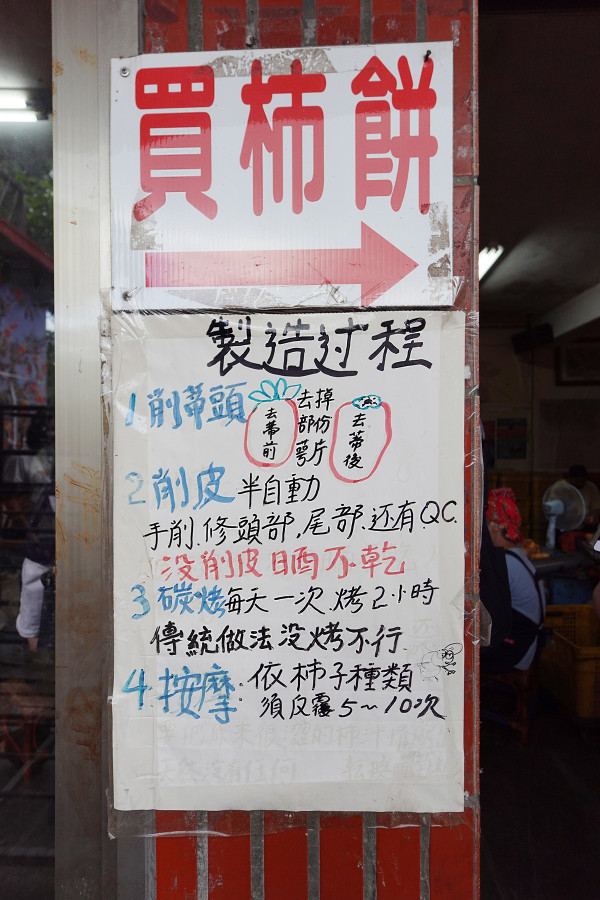 買柿餅
製造过程
1 削蒂頭
去蒂前
去掉
部份
萼片
去蒂後
2 削皮 半自動
手削.修頭部,尾部.还有.QC.
沒削皮晒不乾
3 碳烤每天一次.烤2小時
傳統做法沒烤不行.
4.按摩:依柿子種類
須反覆5~10次